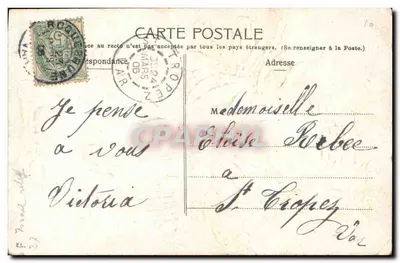 CARTE POSTALE
ce au recto n'est pas acceptée par tous les pays étrangers. (Se renseigner à la Poste.)
espondance
Adresse
ROQUEBRUNE
ST TROPEZ
MARS
06
VAR
Je pense
à vous
Victoria
Mademoiselle
Eloïse
à
St Tropez
Var
CPARAMA